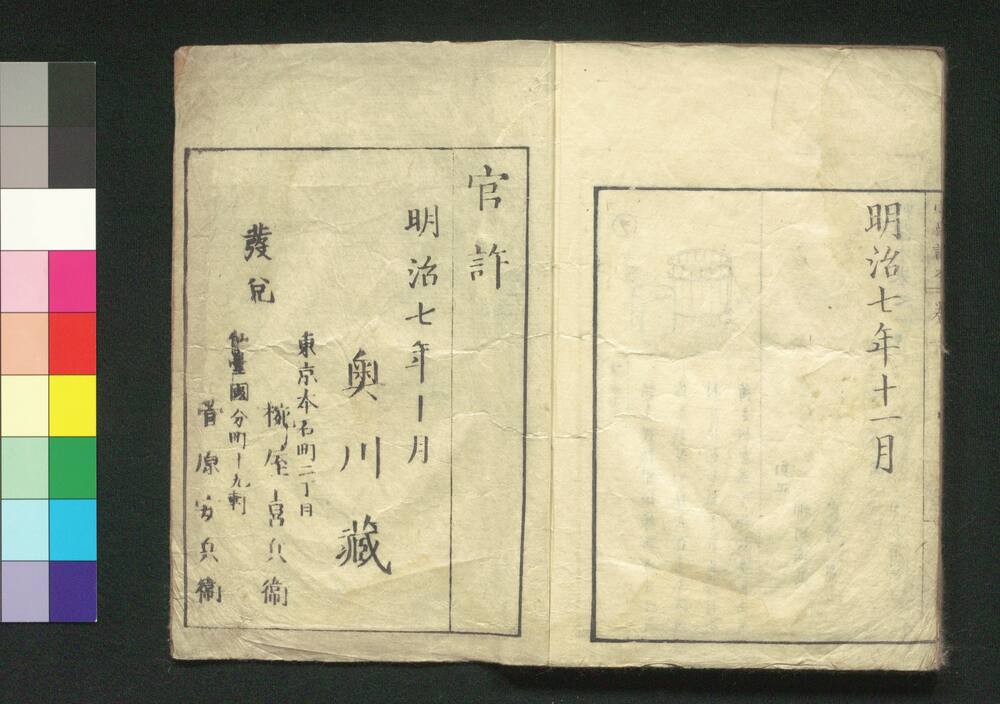 明治七年十一月
官許
明治七年十月
奥川藏
東京本石町二丁目
椀屋喜兵衞
發兌
仙臺國分町十九軒
菅原安兵衞